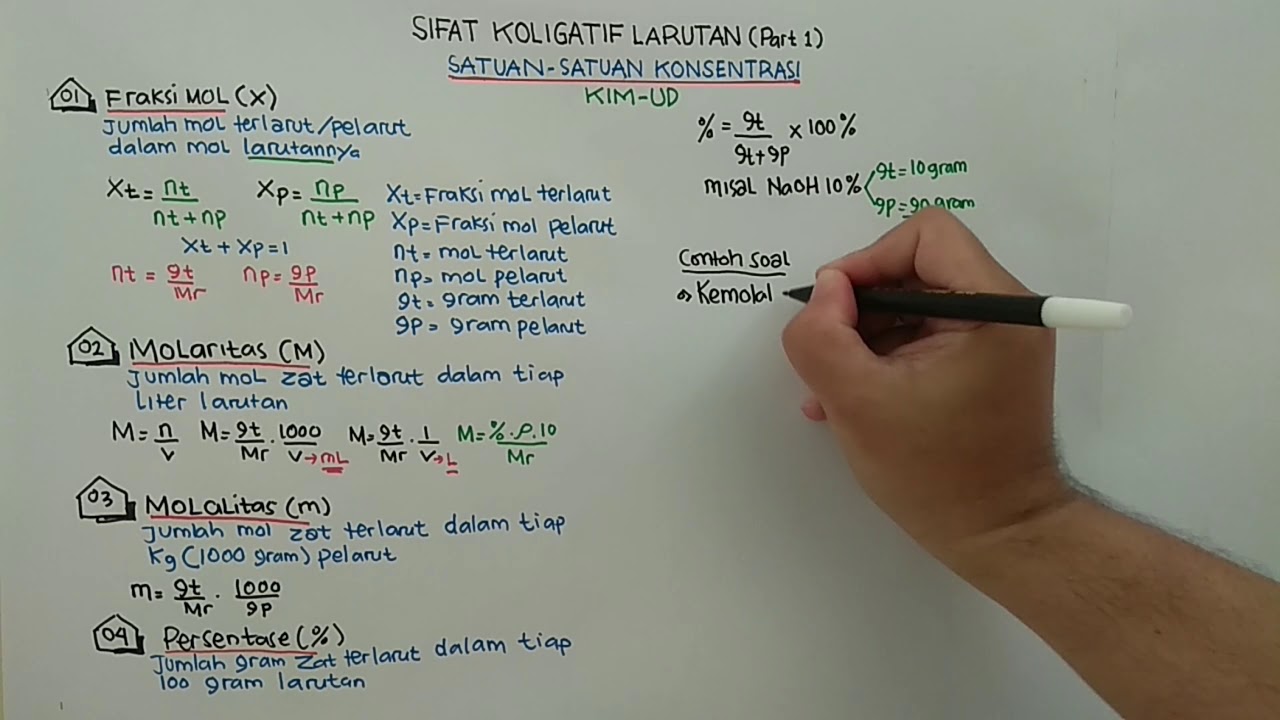 SIFAT KOLIGATIF LARUTAN (Part 1)
SATUAN-SATUAN KONSENTRASI
KIM-UD
01 Fraksi MOL (X)
Jumlah mol terlarut/pelarut
dalam mol larutannya
Xt = nt / nt + np
Xp = np / nt + np
Xt + Xp = 1
nt = gt / Mr
np = gp / Mr
Xt = Fraksi mol terlarut
Xp = Fraksi mol pelarut
nt = mol terlarut
np = mol pelarut
gt = gram terlarut
gp = gram pelarut
02 Molaritas (M)
Jumlah mol zat terlarut dalam tiap
liter larutan
M = n / V
M = gt / Mr . 1000 / V → mL
M = gt / Mr . 1 / V → L
M = % . ρ . 10 / Mr
03 Molalitas (m)
Jumlah mol zat terlarut dalam tiap
Kg (1000 gram) pelarut
m = gt / Mr . 1000 / gp
04 Persentase (%)
Jumlah gram zat terlarut dalam tiap
100 gram larutan
% = gt / gt + gp x 100%
misal NaOH 10%
gt = 10 gram
gp = 90 gram
Contoh soal
Kemolal